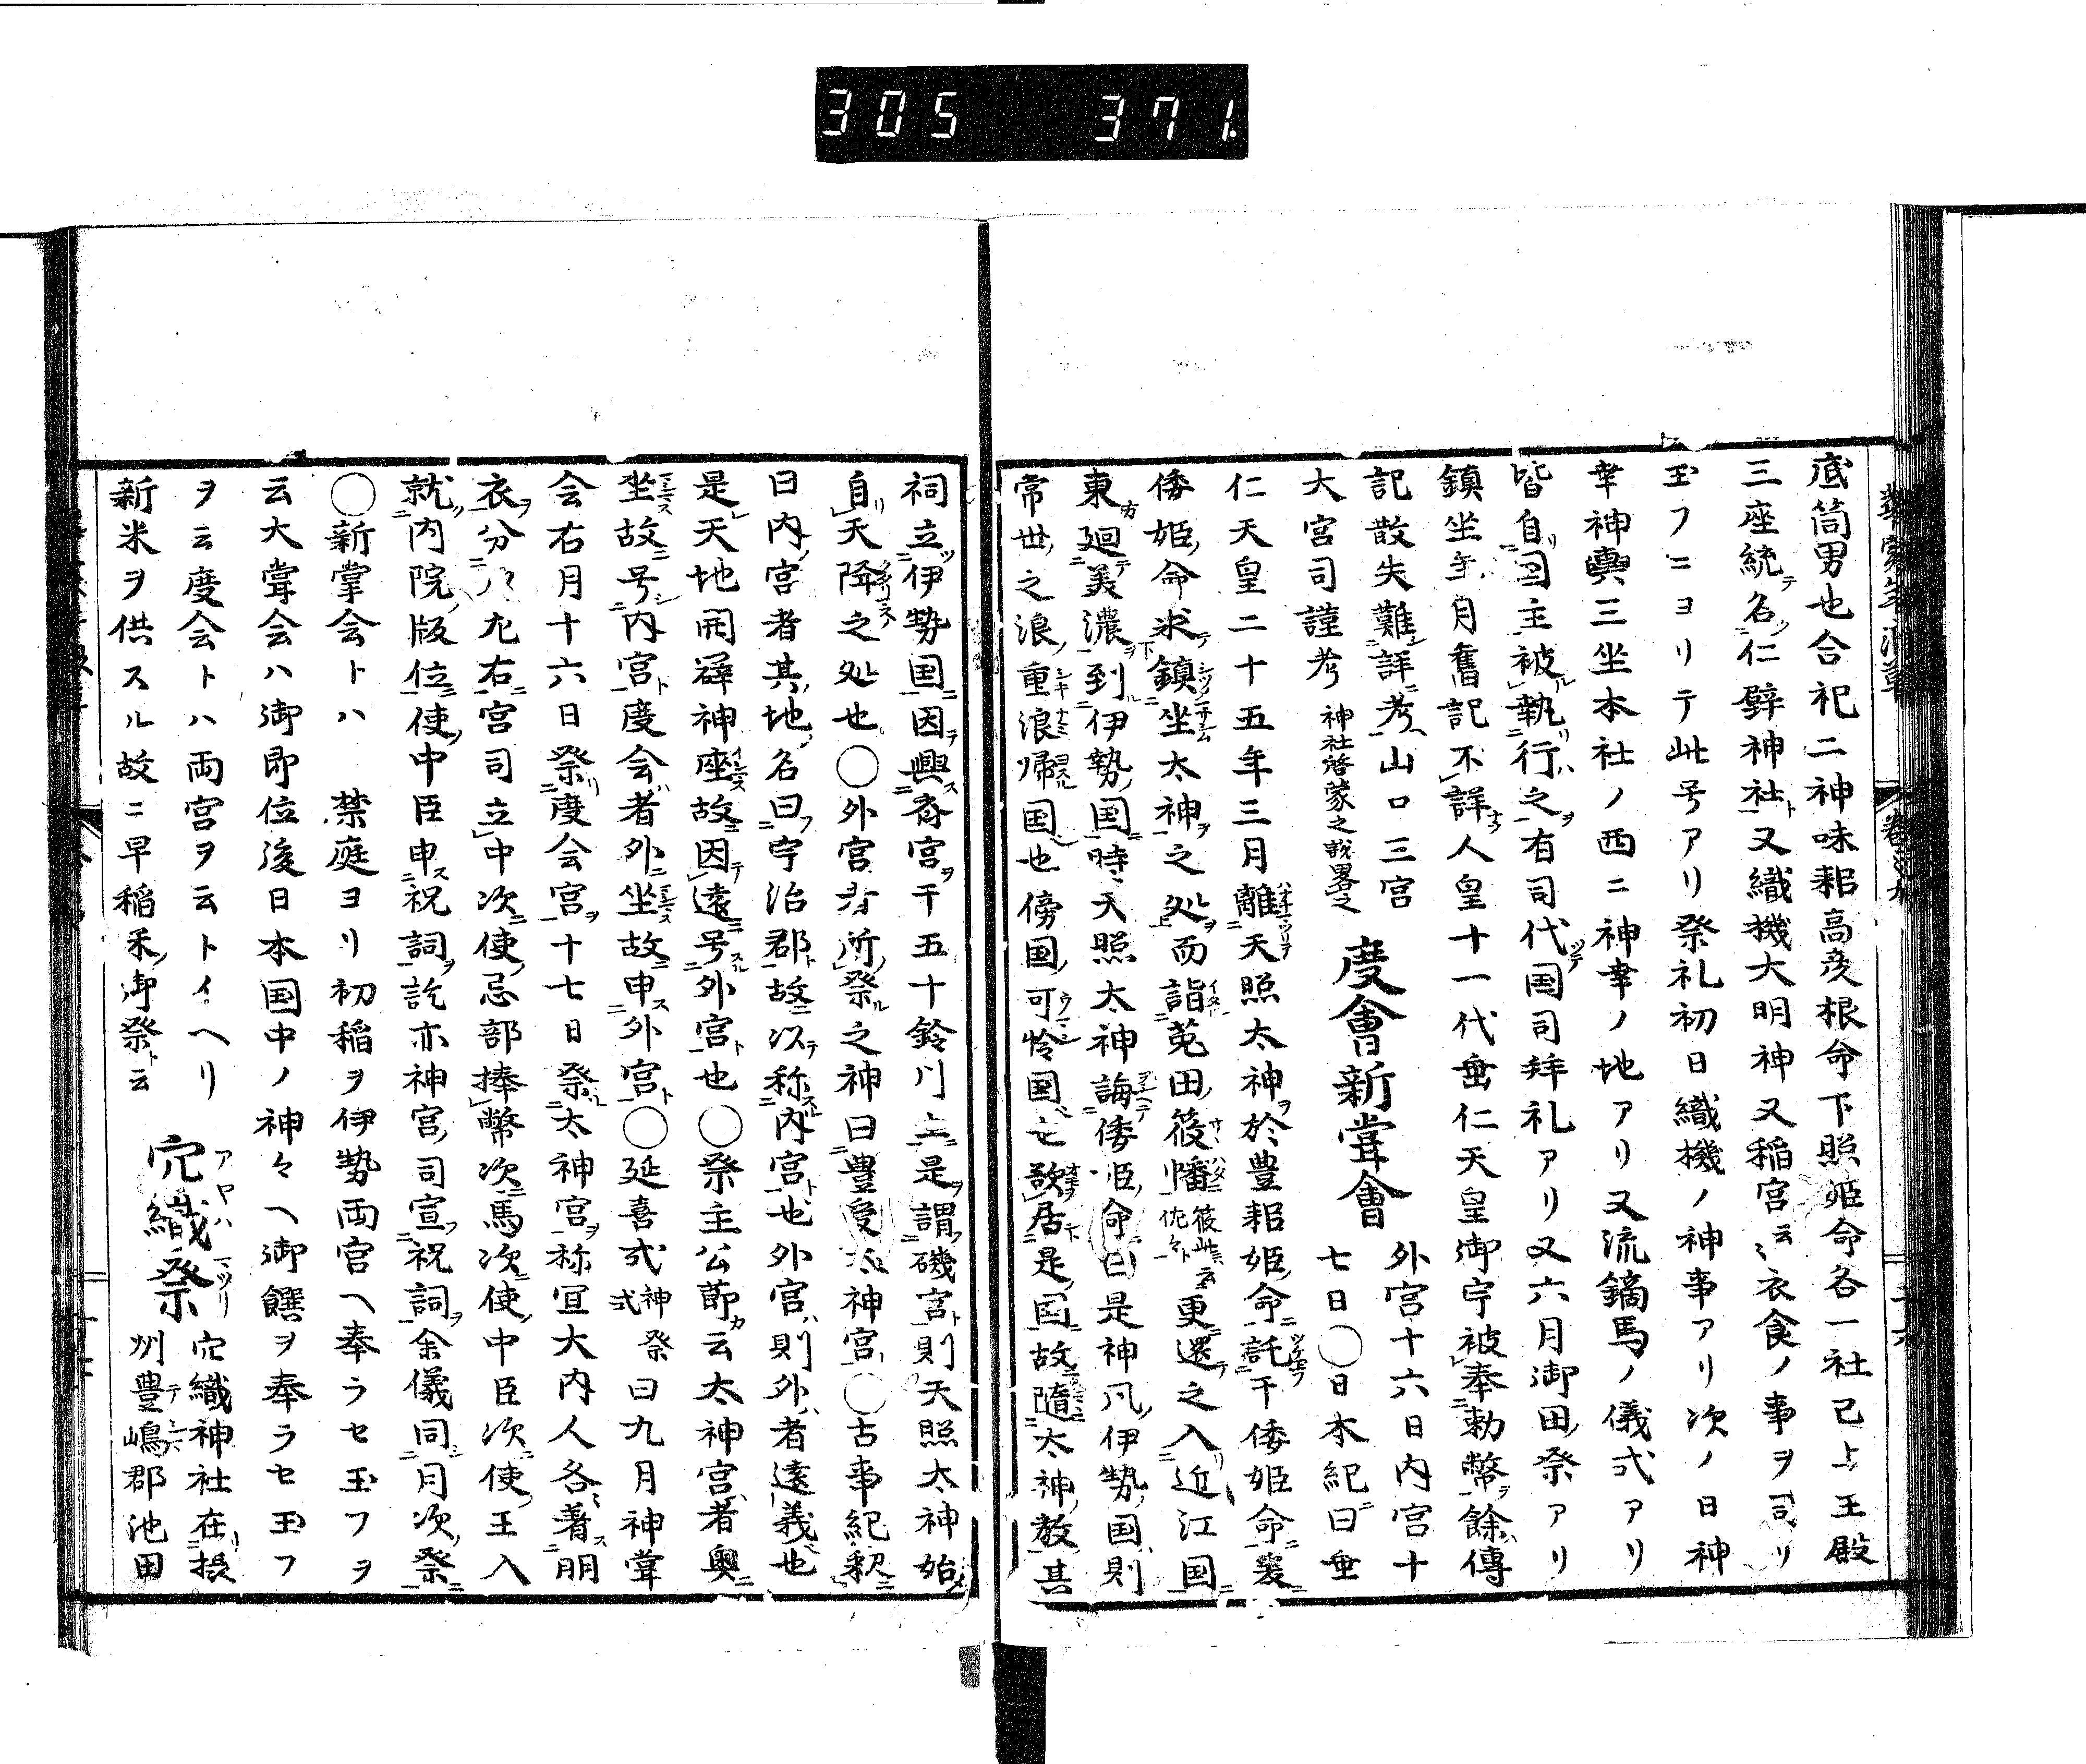 305 371.
底筒男也合祀二神味耜高彦根命下照姫命各一社已上王殿
三座統テ名ク仁辟神社ト又織機大明神又稲宮云〻衣食ノ事ヲ司リ
玉フニヨリテ此号アリ祭礼初日織機ノ神事アリ次ノ日神
幸神輿三坐本社ノ西ニ神幸ノ地アリ又流鏑馬ノ儀式アリ
皆自国主被執行之有司代国司拜礼アリ又六月御田祭アリ
鎮坐年月舊記不詳人皇十一代垂仁天皇御宇被奉勅幣餘傳
記散失難詳考山口三宮
大宮司謹考 神社啓蒙之説畧之
度會新甞會
外宮十六日内宮十
七日〇日本紀曰垂
仁天皇二十五年三月離天照太神於豊耜姫命託于倭姫命爰
倭姫命求鎮坐太神之処而詣莵田筱幡筱此云佐々更還之入近江国
東廻美濃到伊勢国時天照太神誨倭姫命曰是神凡伊勢国則
常世之浪重浪帰国也傍国可怜国也欲居是国故随太神教其
祠立伊勢国因興斎宮于五十鈴川上是謂磯宮則天照太神始
自天降之処也〇外宮者所祭之神曰豊受太神宮〇古事紀釈
曰内宮者其地名曰宇治郡故以称内宮也外宮則外者遠義也
是天地開闢神座故因遠号外宮也〇祭主公節云太神宮者奥
坐故号内宮度会者外坐故申外宮〇延喜式神祭式曰九月神甞
会右月十六日祭度会宮十七日祭太神宮祢宜大内人各着明
衣分左右宮司立中次使忌部捧幣次馬次使中臣次使王入
就内院版位使中臣申祝詞訖亦神宮司宣祝詞余儀同月次祭
〇新掌会トハ 禁庭ヨリ初稲ヲ伊勢両宮ヘ奉ラセ玉フヲ
云大甞会ハ御即位後日本国中ノ神々ヘ御饌ヲ奉ラセ玉フ
ヲ云度会トハ両宮ヲ云トイヘリ
新米ヲ供スル故ニ早稲禾御祭ト云
穴織祭
アヤハマツリ
穴織神社在摂
州豊嶋郡池田